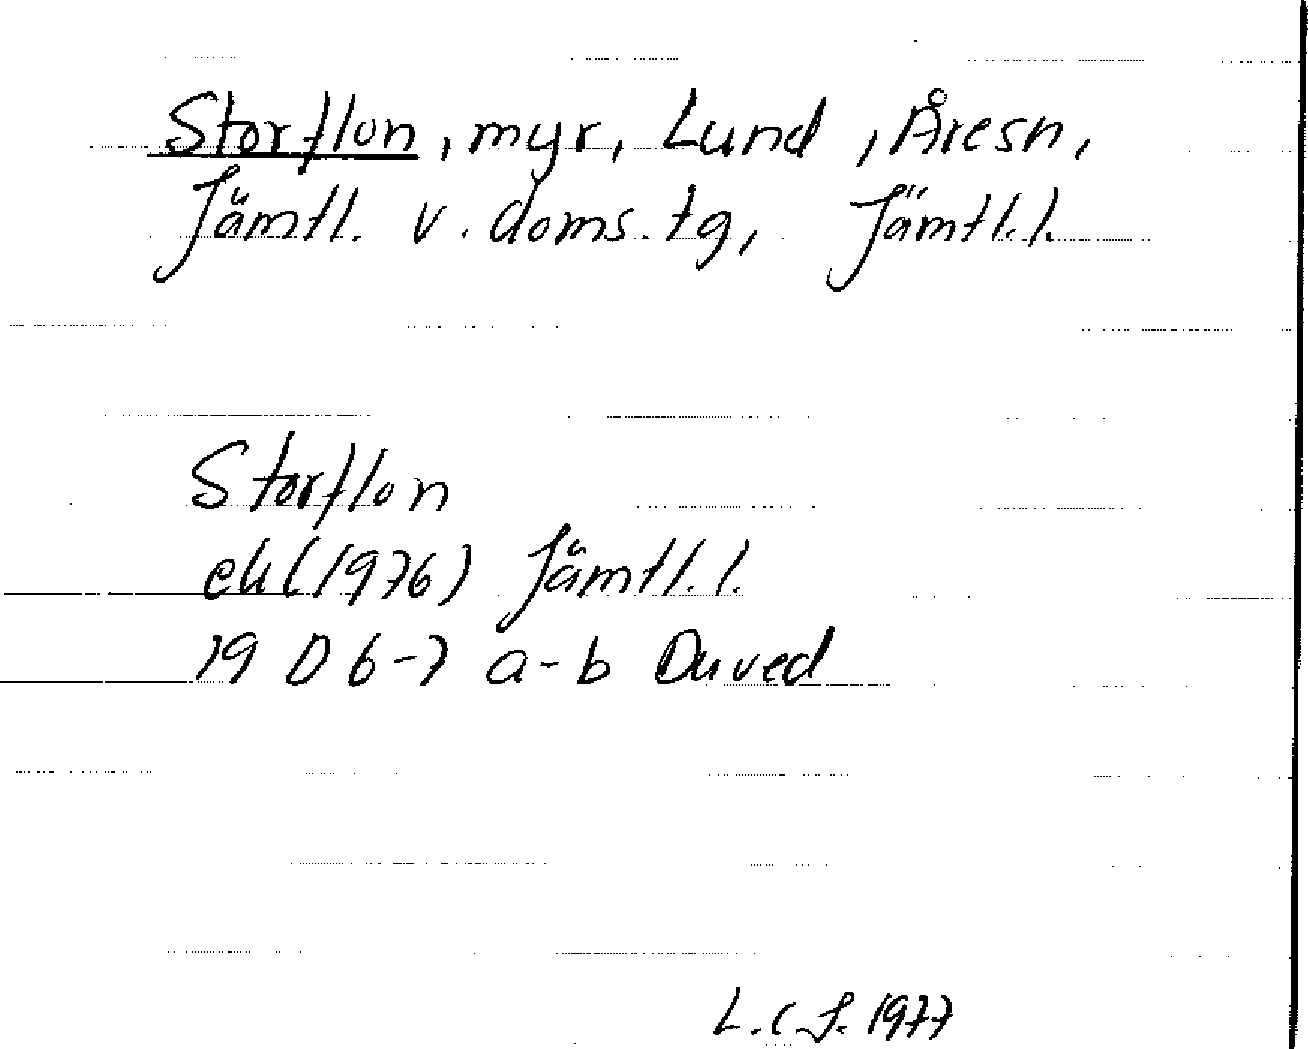 Storflon, myr, Lund, Åresn,
Jämtl. v. doms. tg, Jämtl.l.
Storflon
ek (1976) Jämtl.l.
19 D 6-7 a-b Duved
L.C.S. 1977